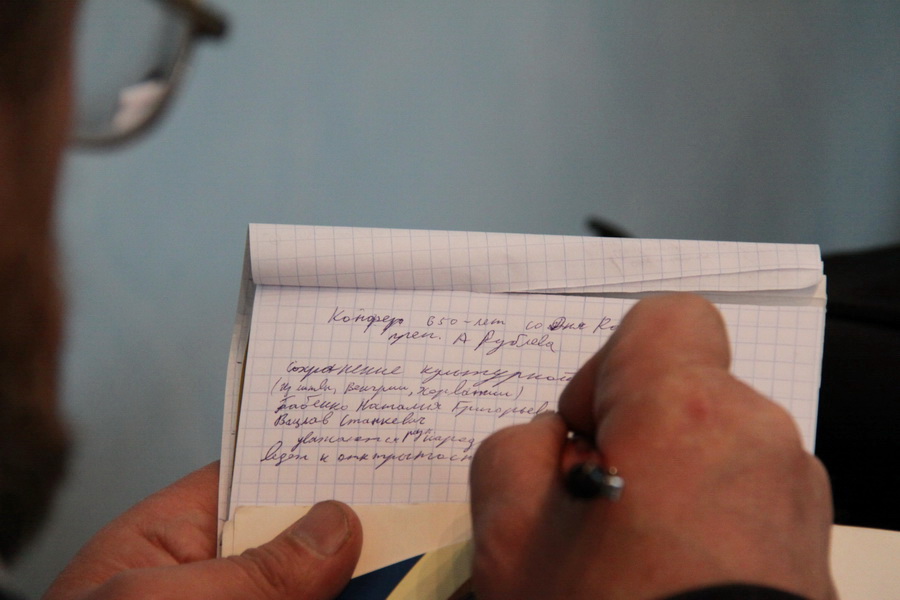 Конфер 650-лет со Дня Ко
преп. А Рублева
Сохранение культурно
Венгрии, Хорватии)
Бабенко Наталия Григорьев
Вацлав Станкевич
уважается народ
Ведёт к открытост